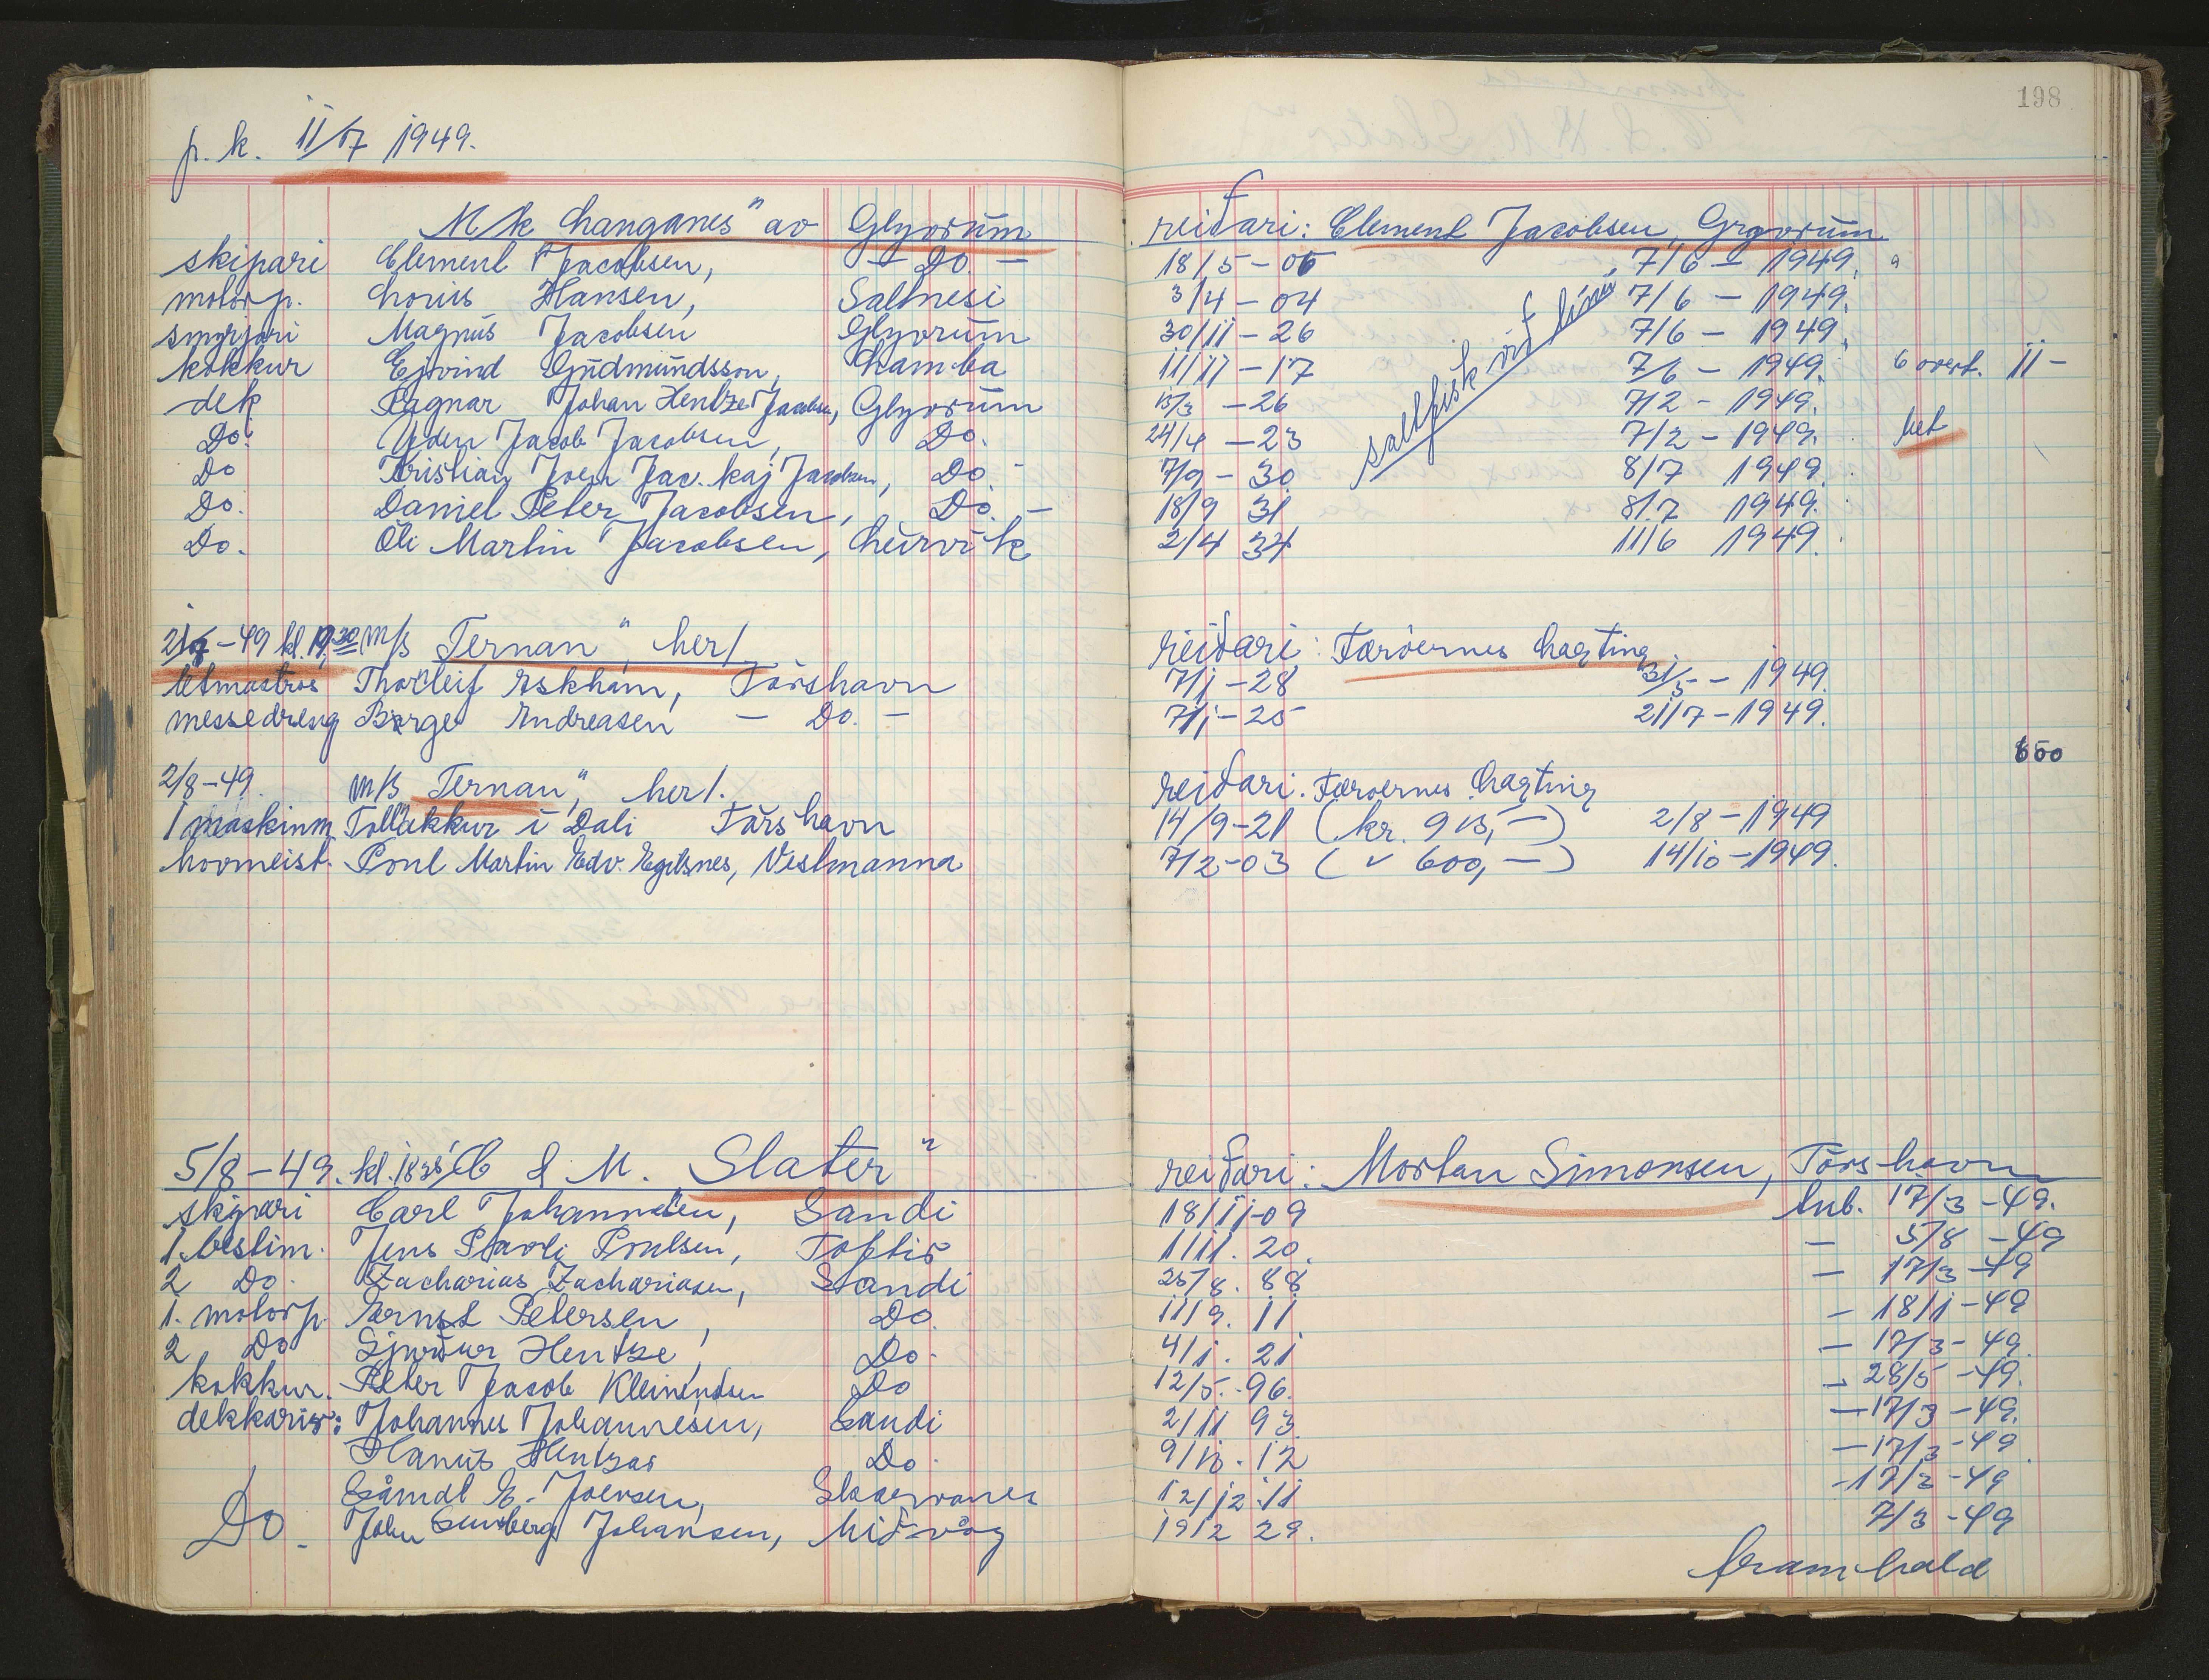 198
p. k. 11/7 1949.
M/k Langanes" av Glyvrum reidari: Clement Jacobsen, Glyvrum
skipari Clement Jacobsen, - Do. - 18/5 - 05 7/6 - 1949.
motorp. Louis Hansen, Saltnesi 3/4 - 04 7/6 - 1949.
smyrjari Magnus Jacobsen Glyvrum 30/11 - 26 7/6 - 1949.
kokkur Ejvind Gudmundsson, Lamba 11/11 - 17 7/6 - 1949. 6 overt. 11 -
dek Ragnar Johan Hentze Jacobsen, Glyvrum 15/3 - 26 7/2 - 1949.
Do. Jacob Jacobsen, Do. 24/4 - 23 7/2 - 1949.
Do Kristian Joen Jac. Kaj Jacobsen, Do. 7/9 - 30 8/7 1949.
Do. Daniel Peter Jacobsen, Do. - 18/9 31 8/7 1949.
Do. Óli Martin Jacobsen, Leirvik 2/4 34 11/6 1949.
saltfisk við línu
21/7 - 49 kl. 19,30 m/s Ternan", her/. reiðari: Færøernes Lagting
letmatros Thorleif Eskham, Tórshavn 7/1 - 28 31/5 - 1949.
messedreng Børge Andreasen - Do. - 7/1 - 25 21/7 - 1949.
600
2/8 - 49. m/s Ternan", her/. reiðari. Færøernes Lagting
1 maskinm Tollakkur i Dali Tórshavn 14/9 - 21 (kr. 915,-) 2/8 - 1949
hovmeist. Poul Martin Edv. Egilsnes, Vestmanna 7/2 - 03 ( " 600,-) 14/10 - 1949.
5/8 - 49. kl. 1825 C & M. Slater" reiðari: Mortan Simonsen, Tórshavn
skipari Carl Johannesen, Sandi 18/11 - 09 lub. 17/3 - 49.
1. bestim. Jens Pauli Poulsen, Toftir 1/11. 20. - 5/8 - 49
2 Do. Zacharias Zachariasen, Sandi 25/8. 88 - 17/3 - 49
1. motorp. Ernst Petersen, Do. 11/9. 11 - 18/1 - 49
2 Do Sjúrður Hentze, Do. 4/1. 21 - 17/3 - 49.
kokkur. Peter Jacob Kleinendsen Do 12/5. - 96. - 28/5 - 49.
dekkarir: Johannes Johannesen, Sandi 2/11 93 - 17/3 - 49.
Hanus Hentzar Do. 9/10. 12 - 17/3 - 49
Sámal E. Joensen, Skarvanes 12/12. 11 - 17/3 - 49
Do. John Sundberg Johansen, Miðvág 19/2 29. 7/3 - 49
framhald